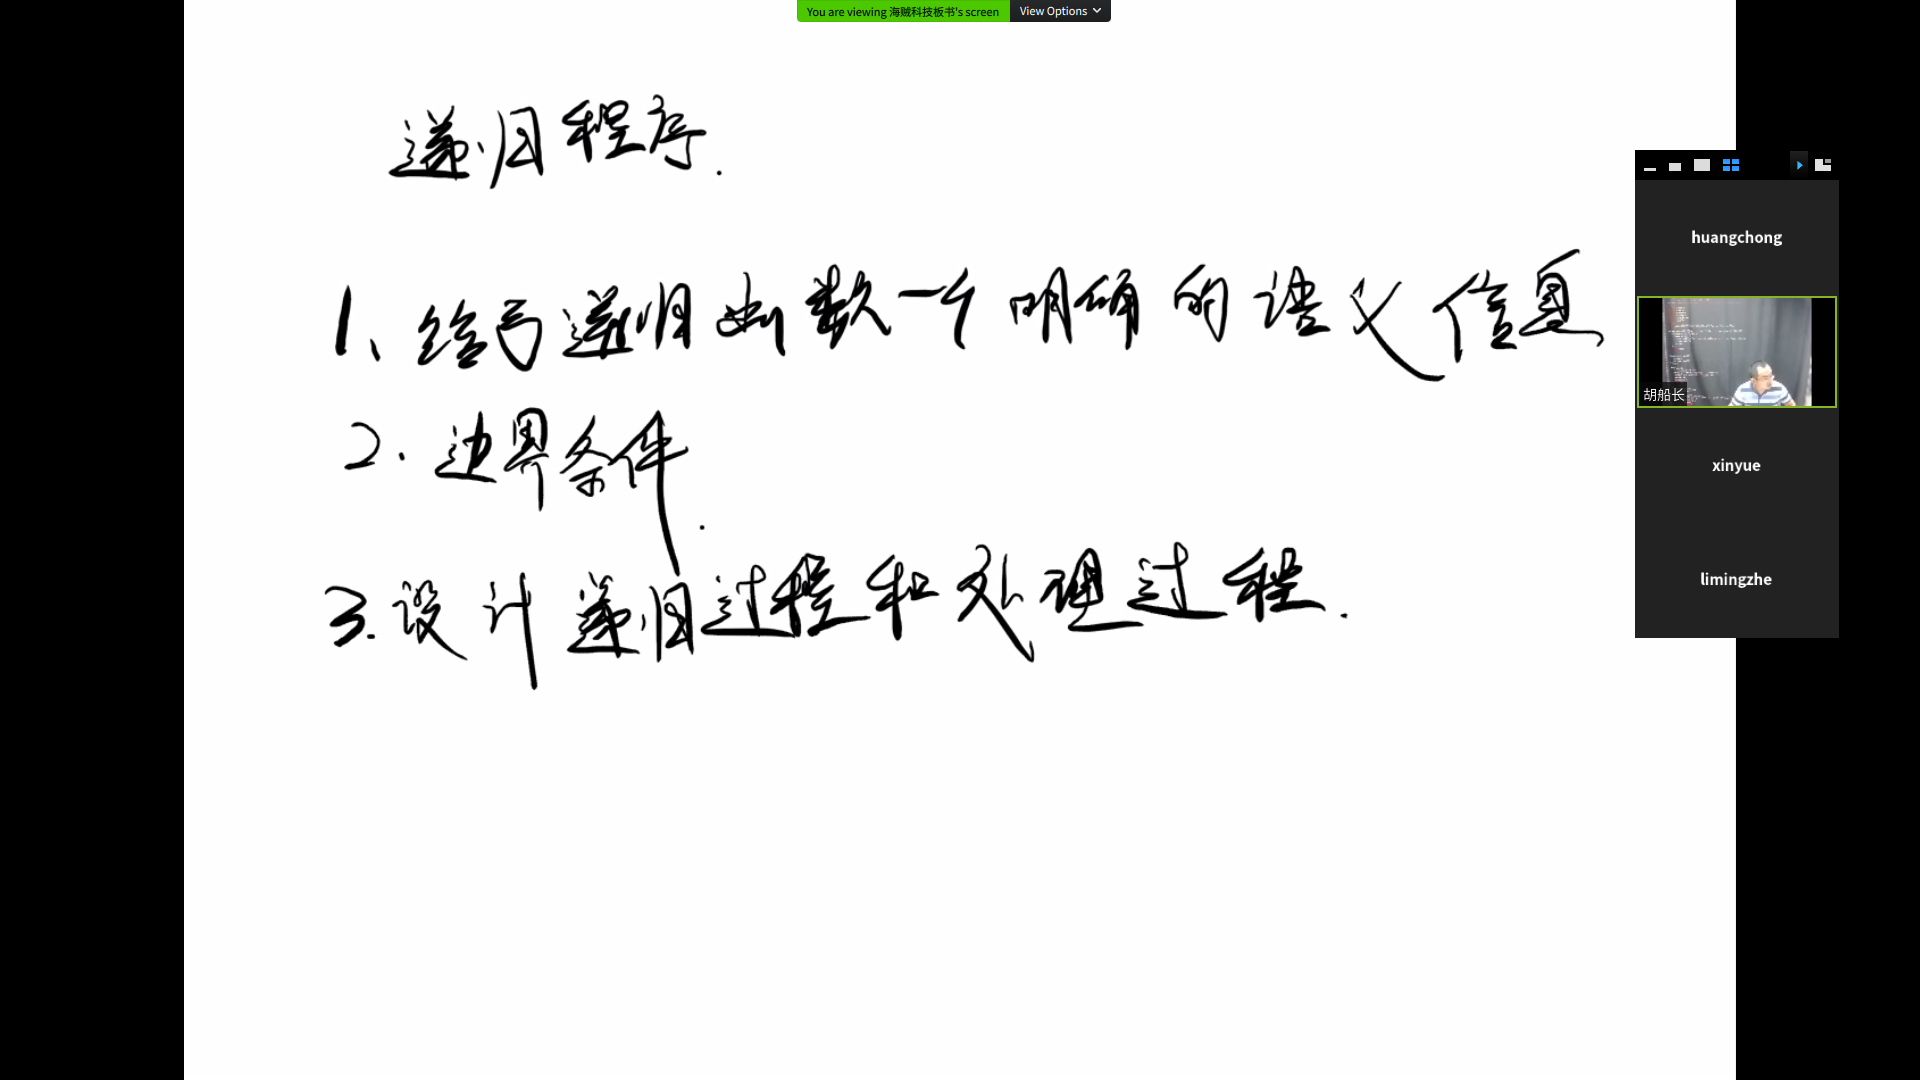 You are viewing 海贼科技板书's screen View Options
递归程序.
1、给与递归函数一个明确的语义信息
2.边界条件.
3.设计递归过程和处理过程.
huangchong
胡船长
xinyue
limingzhe